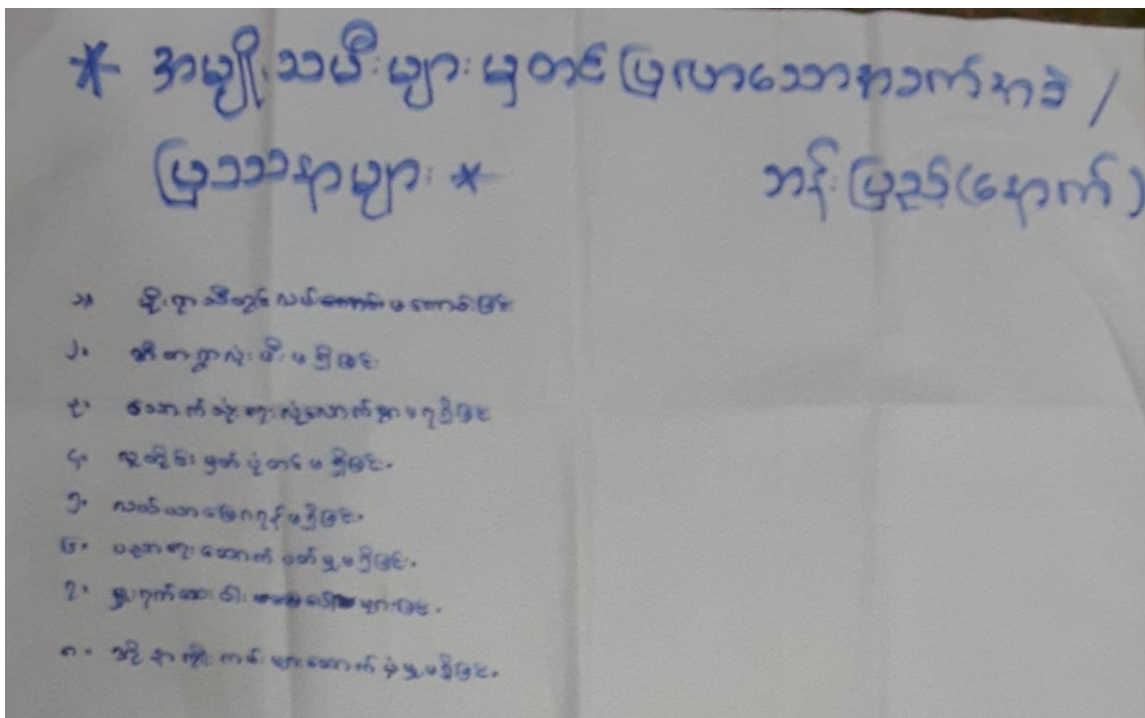 * အမျိုးသမီးများမှတင်ပြလာသောအခက်အခဲ /
ပြဿနာများ *
ဘန်းပြည်(နောက်)
၁။ မိုးရာသီတွင်လမ်းမကောင်းခြင်း
၂။ အိမ်တွင်းမီးမရှိခြင်း
၃။ သောက်သုံးရေလုံလောက်စွာမရရှိခြင်း
၄။ လူတိုင်းမှတ်ပုံတင်မရှိခြင်း။
၅။ လယ်ယာမြေဂရန်မရှိခြင်း။
၆။ ပညာရေးထောက်ပံ့မှုမရှိခြင်း။
၇။ မူးယစ်ဆေးဝါး များခြင်း။
၈။ သက်ကြီး ထောက်ပံ့မှုမရှိခြင်း။